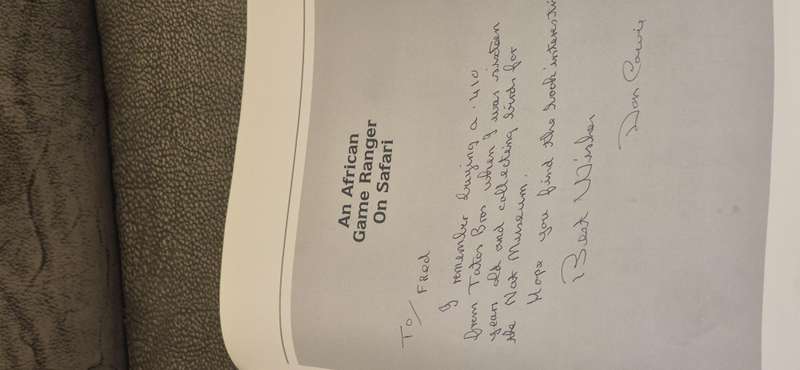 An African
Game Ranger
On Safari
To/ FRED
I remember buying a .410
from Tates Bros when I was sixteen
years old and collecting birds for
the Nat Museum.
Hope you find the book interesti
Best Wishes
Don